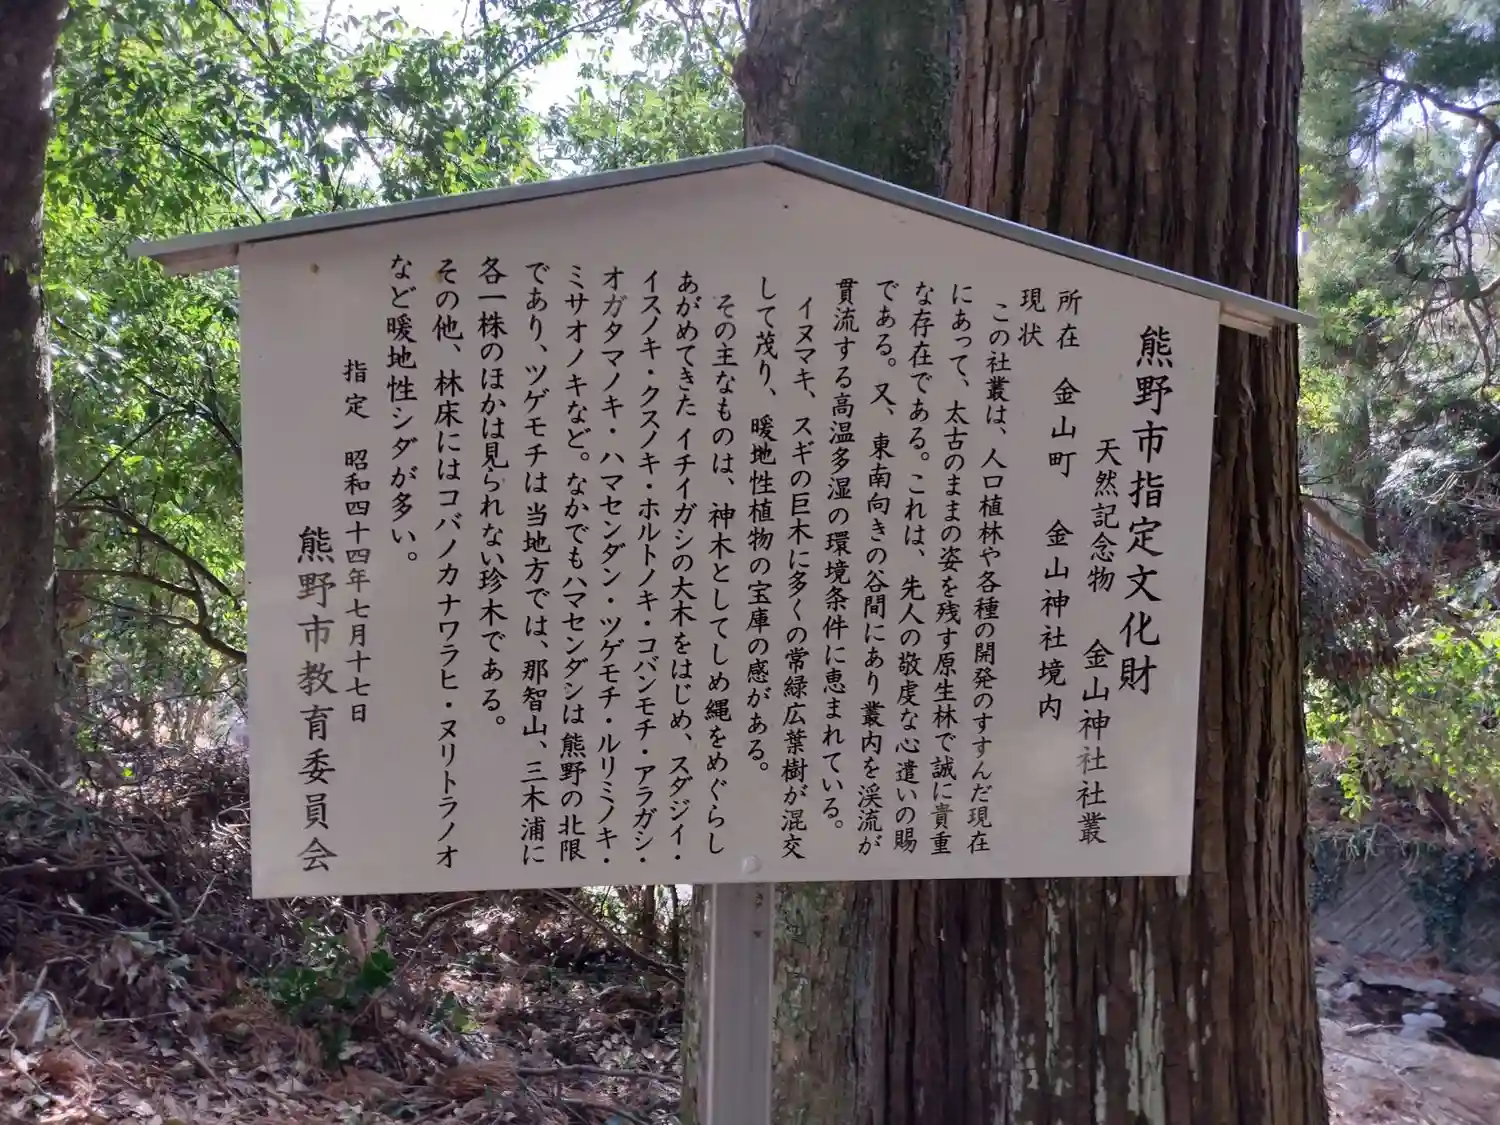 熊野市指定文化財
天然記念物 金山神社社叢
所在 金山町 金山神社境内
現状
この社叢は、人口植林や各種の開発のすすんだ現在
にあって、太古のままの姿を残す原生林で誠に貴重
な存在である。これは、先人の敬虔な心遣いの賜
である。又、東南向きの谷間にあり叢内を渓流が
貫流する高温多湿の環境条件に恵まれている。
イヌマキ、スギの巨木に多くの常緑広葉樹が混交
して茂り、暖地性植物の宝庫の感がある。
その主なものは、神木としてしめ縄をめぐらし
あがめてきたイチイガシの大木をはじめ、スダジイ・
イスノキ・クスノキ・ホルトノキ・コバンモチ・アラガシ・
オガタマノキ・ハマセンダン・ツゲモチ・ルリミノキ・
ミサオノキなど。なかでもハマセンダンは熊野の北限
であり、ツゲモチは当地方では、那智山、三木浦に
各一株のほかは見られない珍木である。
その他、林床にはコバノカナワラヒ・ヌリトラノオ
など暖地性シダが多い。
指定 昭和四十四年七月十七日
熊野市教育委員会